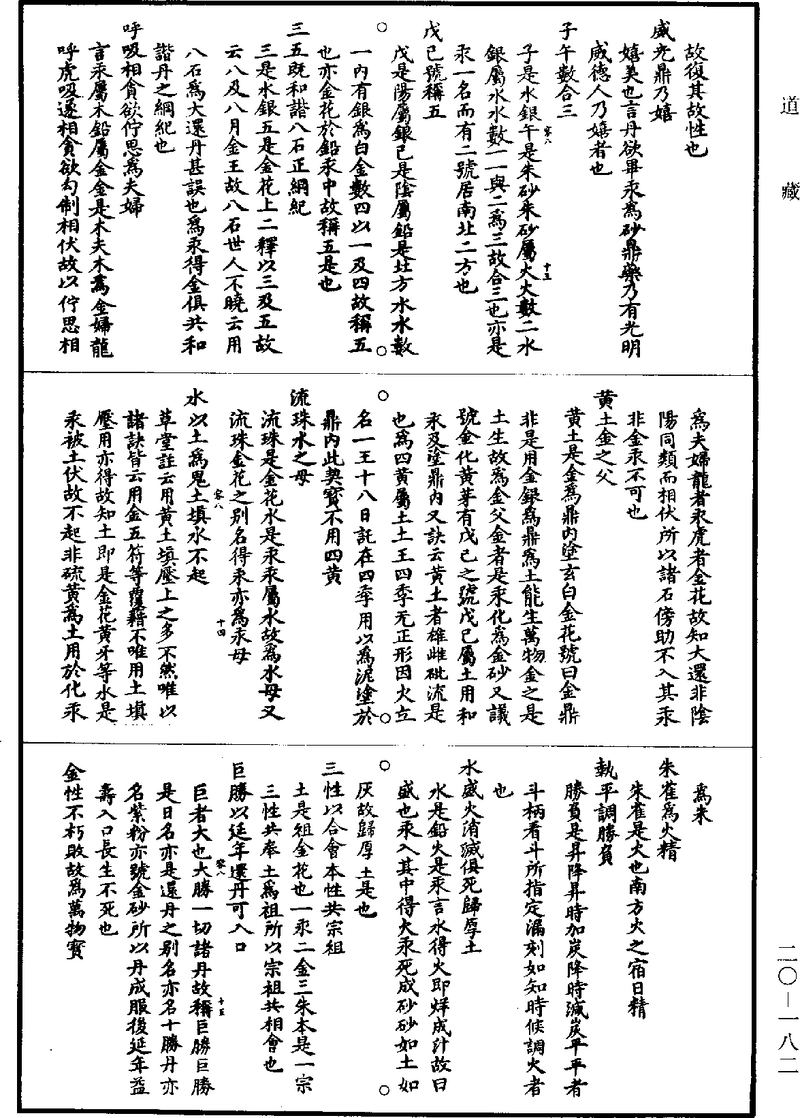 道藏
故復其故性也
威光鼎乃嬉
嬉美也言丹欲畢汞爲砂鼎藥乃有光明
威德人乃嬉者也
子午數合三
子是水銀午是朱砂朱砂屬火火數二水
銀屬水水數一一與二爲三故合三也亦是
汞一名而有二號居南北二方也
戊己號稱五
戊是陽屬銀己是陰屬鉛是北方水水數
一內有銀爲白金數四以一及四故稱五
也亦金花於鉛汞中故稱五是也
三五既和諧八石正綱紀
三是水銀五是金花上二釋以三及五故
云八及八月金王故八石世人不曉云用
八石爲大還丹甚誤也爲汞得金俱共和
諧丹之綱紀也
呼吸相貪欲佇思爲夫婦
言汞屬木鉛屬金金是木夫木爲金婦龍
呼虎吸遂相貪欲勾制相伏故以佇思相
爲夫婦龍者汞虎者金花故知大還非陰
陽同類而相伏所以諸石傍助不入其汞
非金汞不可也
黃土金之父
黃土是金爲鼎內塗玄白金花號曰金鼎
非是用金銀爲鼎爲土能生萬物金之是
土生故爲金父金者是汞化爲金砂又議
號金化黃芽有戊己之號戊己屬土用和
汞及塗鼎內又訣云黃土者雄雌砒流是
也爲四黃屬土土王四季无正形因火立
名一王十八日託在四季用以爲泥塗於
鼎內此契寶不用四黃
流珠水之母
流珠是金花水是汞汞屬水故爲水母又
流珠金花之别名得汞亦爲汞母
容八
十四
水以土爲鬼土填水不起
草堂註云用黃土填壓上之多不然唯以
諸訣皆云用金五符等覆藉不唯用土填
壓用亦得故知土即是金花黃牙等水是
汞被土伏故不起非硫黃爲土用於化汞
爲朱
朱雀爲火精
朱雀是火也南方火之宿日精
執平調勝負
勝負是昇降昇時加炭降時減炭平平者
斗柄看斗所指定漏刻如知時候調火者
也
水盛火消滅俱死歸厚土
水是鉛火是汞言水得火即烊成汁故曰
盛也汞入其中得火汞死成砂砂如土如
灰故歸厚土是也
三性以合會本性共宗祖
土是祖金花也一汞二金三朱本是一宗
三性共奉土爲祖所以宗祖共相會也
巨勝以延年還丹可入口
巨者大也大勝一切諸丹故稱巨勝巨勝
是日名亦是還丹之别名亦名十勝丹亦
名紫粉亦號金砂所以丹成服後延年益
壽入口長生不死也
容八
十五
金性不朽敗故爲萬物寶
二〇—一八二